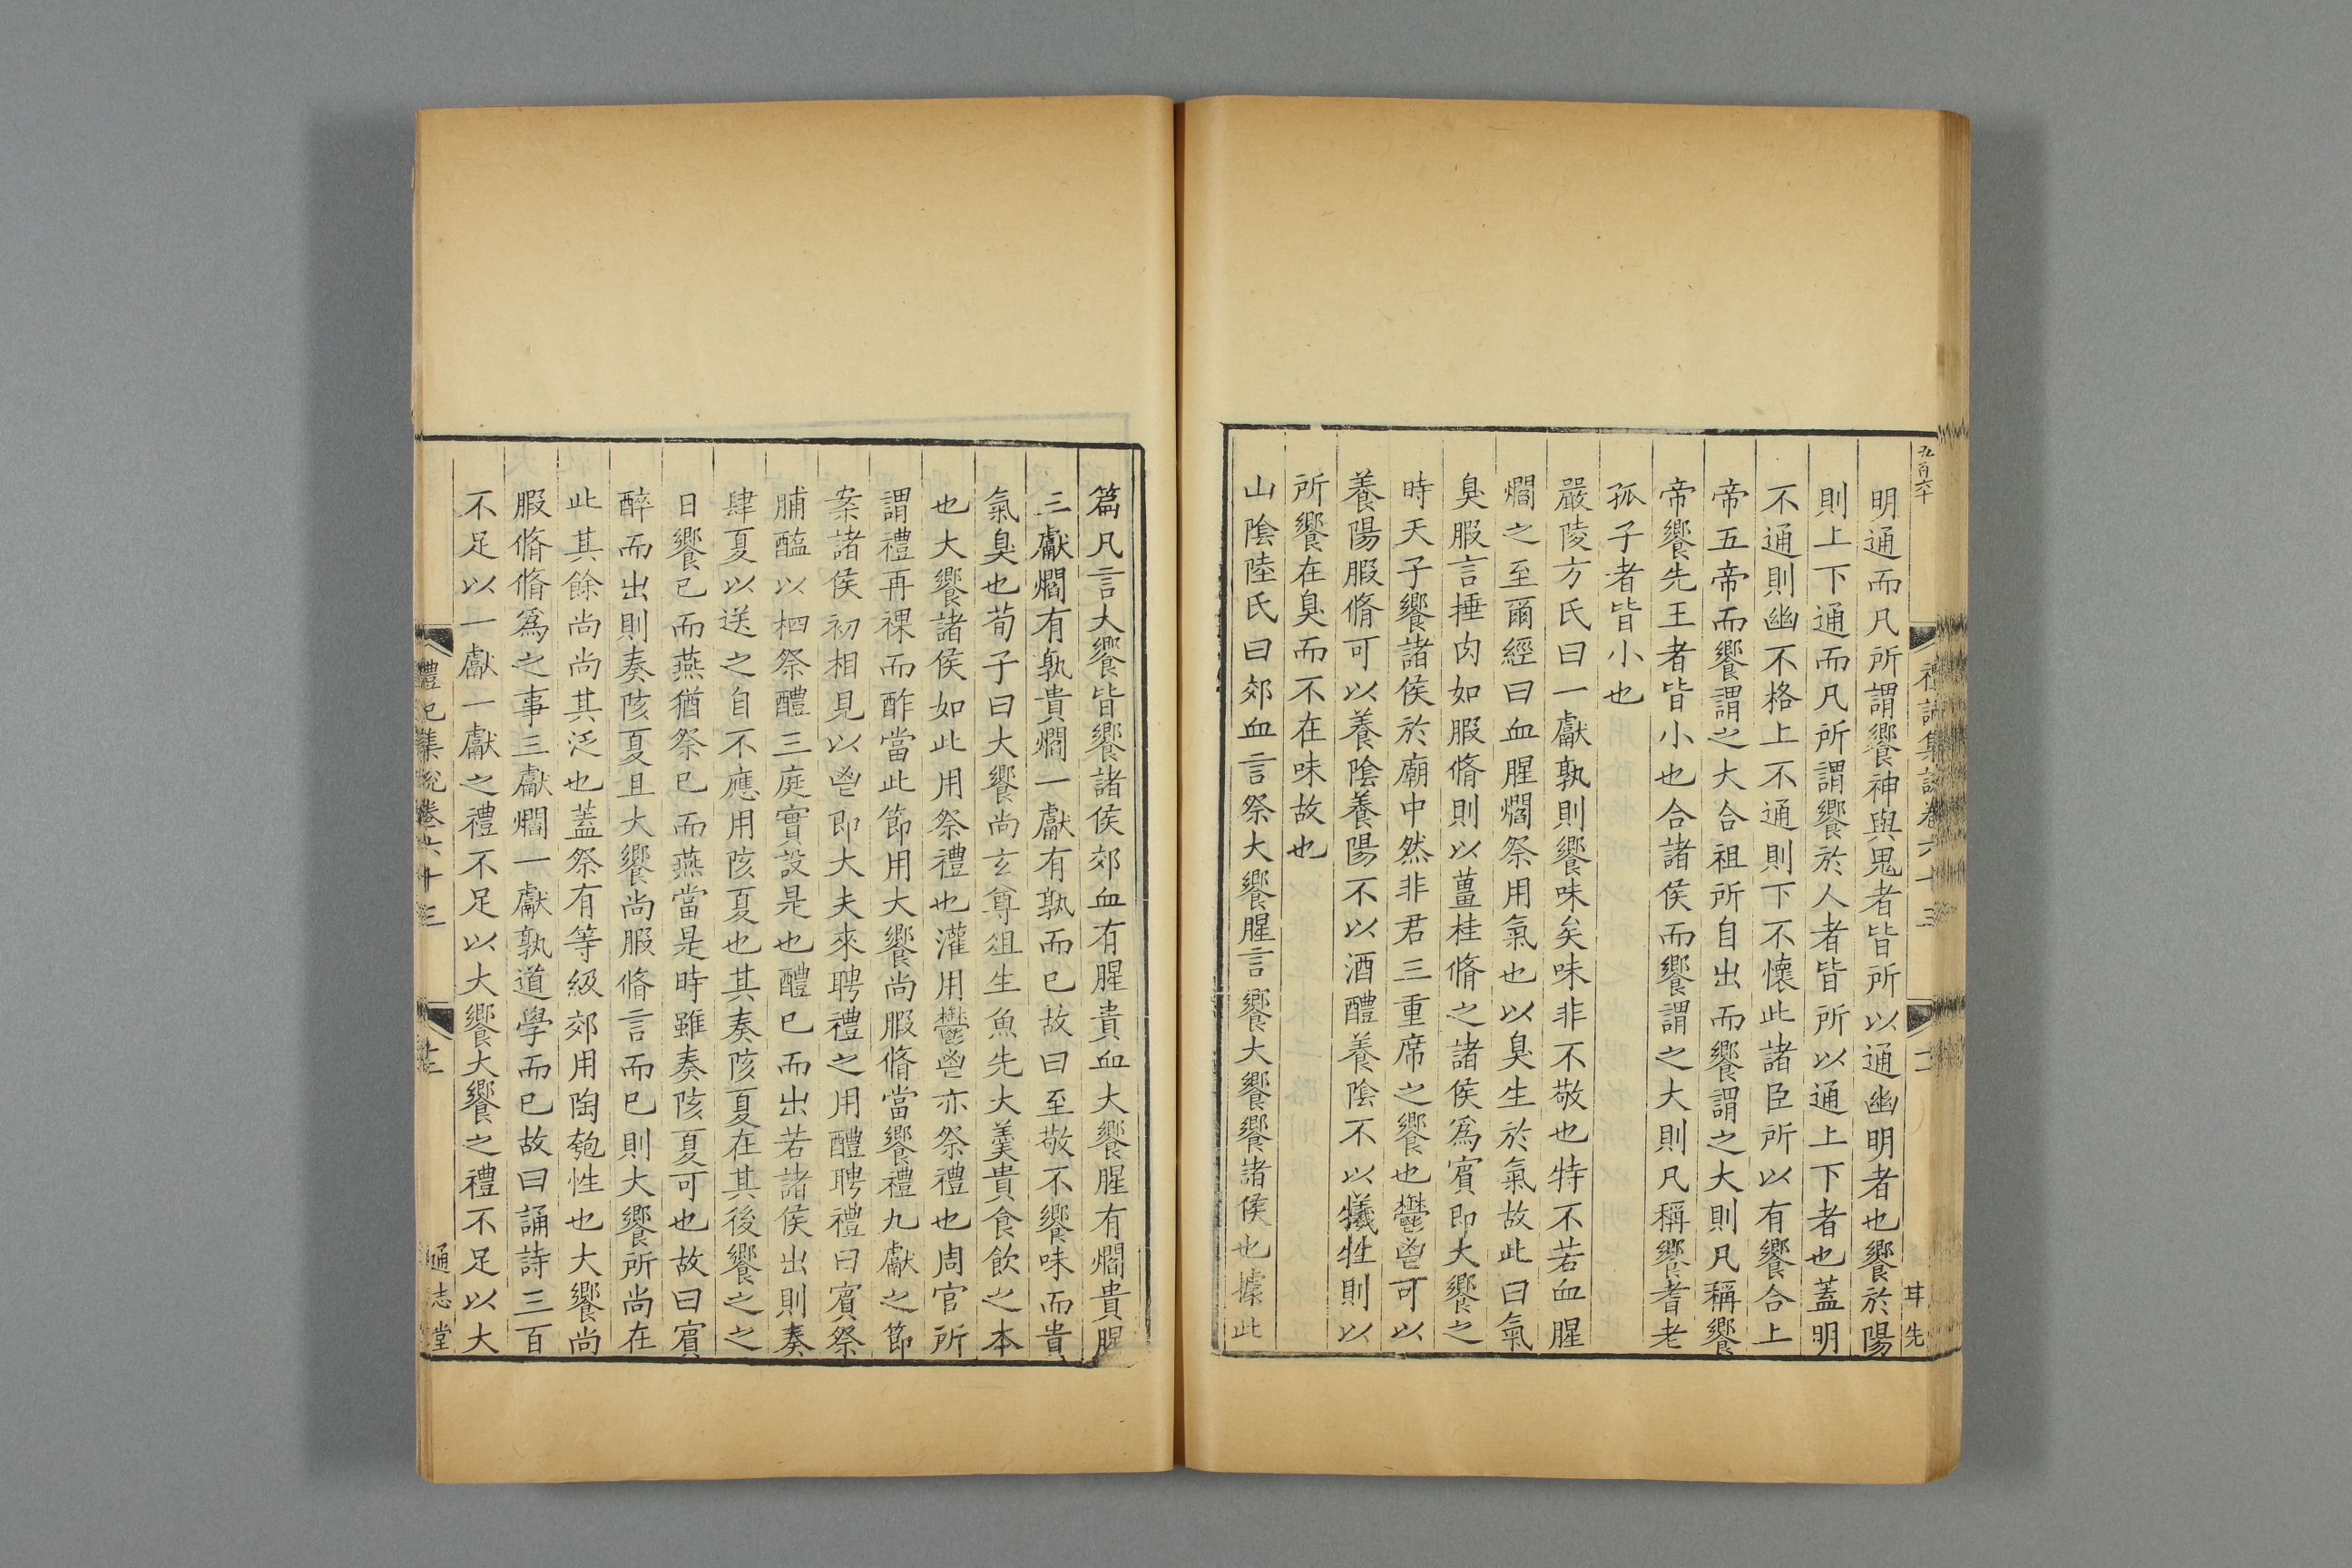 五百六十
禮記集說卷六十三
十二
甘先
明通而凡所謂饗神與鬼者皆所以通幽明者也饗於陽
則上下通而凡所謂饗於人者皆所以通上下者也蓋明
不通則幽不格上不通則下不懷此諸臣所以有饗合上
帝五帝而饗謂之大合祖所自出而饗謂之大則凡稱饗
帝饗先王者皆小也合諸侯而饗謂之大則凡稱饗耆老
孤子者皆小也
嚴陵方氏曰一獻孰則饗味矣味非不敬也特不若血腥
爓之至爾經曰血腥爓祭用氣也以臭生於氣故此曰氣
臭腶言捶肉如腶脩則以薑桂脩之諸侯爲賓即大饗之
時天子饗諸侯於廟中然非君三重席之饗也鬱鬯可以
養陽腶脩可以養陰養陽不以酒醴養陰不以犧牲則以
所饗在臭而不在味故也
山陰陸氏曰郊血言祭大饗腥言饗大饗饗諸侯也據此
篇凡言大饗皆饗諸侯郊血有腥貴血大饗腥有爓貴腥
三獻爓有孰貴爓一獻有孰而已故曰至敬不饗味而貴
氣臭也荀子曰大饗尚玄尊俎生魚先大羹貴食飲之本
也大饗諸侯如此用祭禮也灌用鬱鬯亦祭禮也周官所
謂禮再祼而酢當此節用大饗尚腶脩當饗禮九獻之節
案諸侯初相見以鬯即大夫來聘禮之用醴聘禮曰賓祭
脯醢以柶祭醴三庭實設是也醴已而出若諸侯出則奏
肆夏以送之自不應用陔夏也其奏陔夏在其後饗之之
日饗已而燕猶祭已而燕當是時雖奏陔夏可也故曰賓
醉而出則奏陔夏且大饗尚腶脩言而已則大饗所尚在
此其餘尚尚其泛也蓋祭有等級郊用陶匏性也大饗尚
腶脩脩爲之事三獻爓一獻孰道學而已故曰誦詩三百
不足以一獻一獻之禮不足以大饗大饗之禮不足以大
禮記集說卷六十三
十三
通志堂